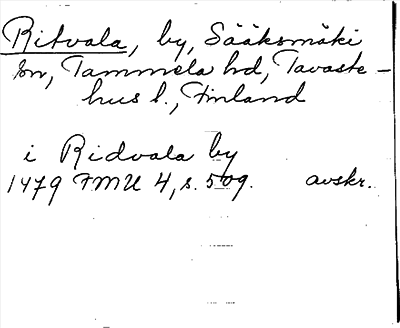 Ritvala, by, Sääksmäki
sn, Tammela hd, Tavaste-
hus l., Finland
i Ridvala by
1479 FMU 4, s. 509. avskr.